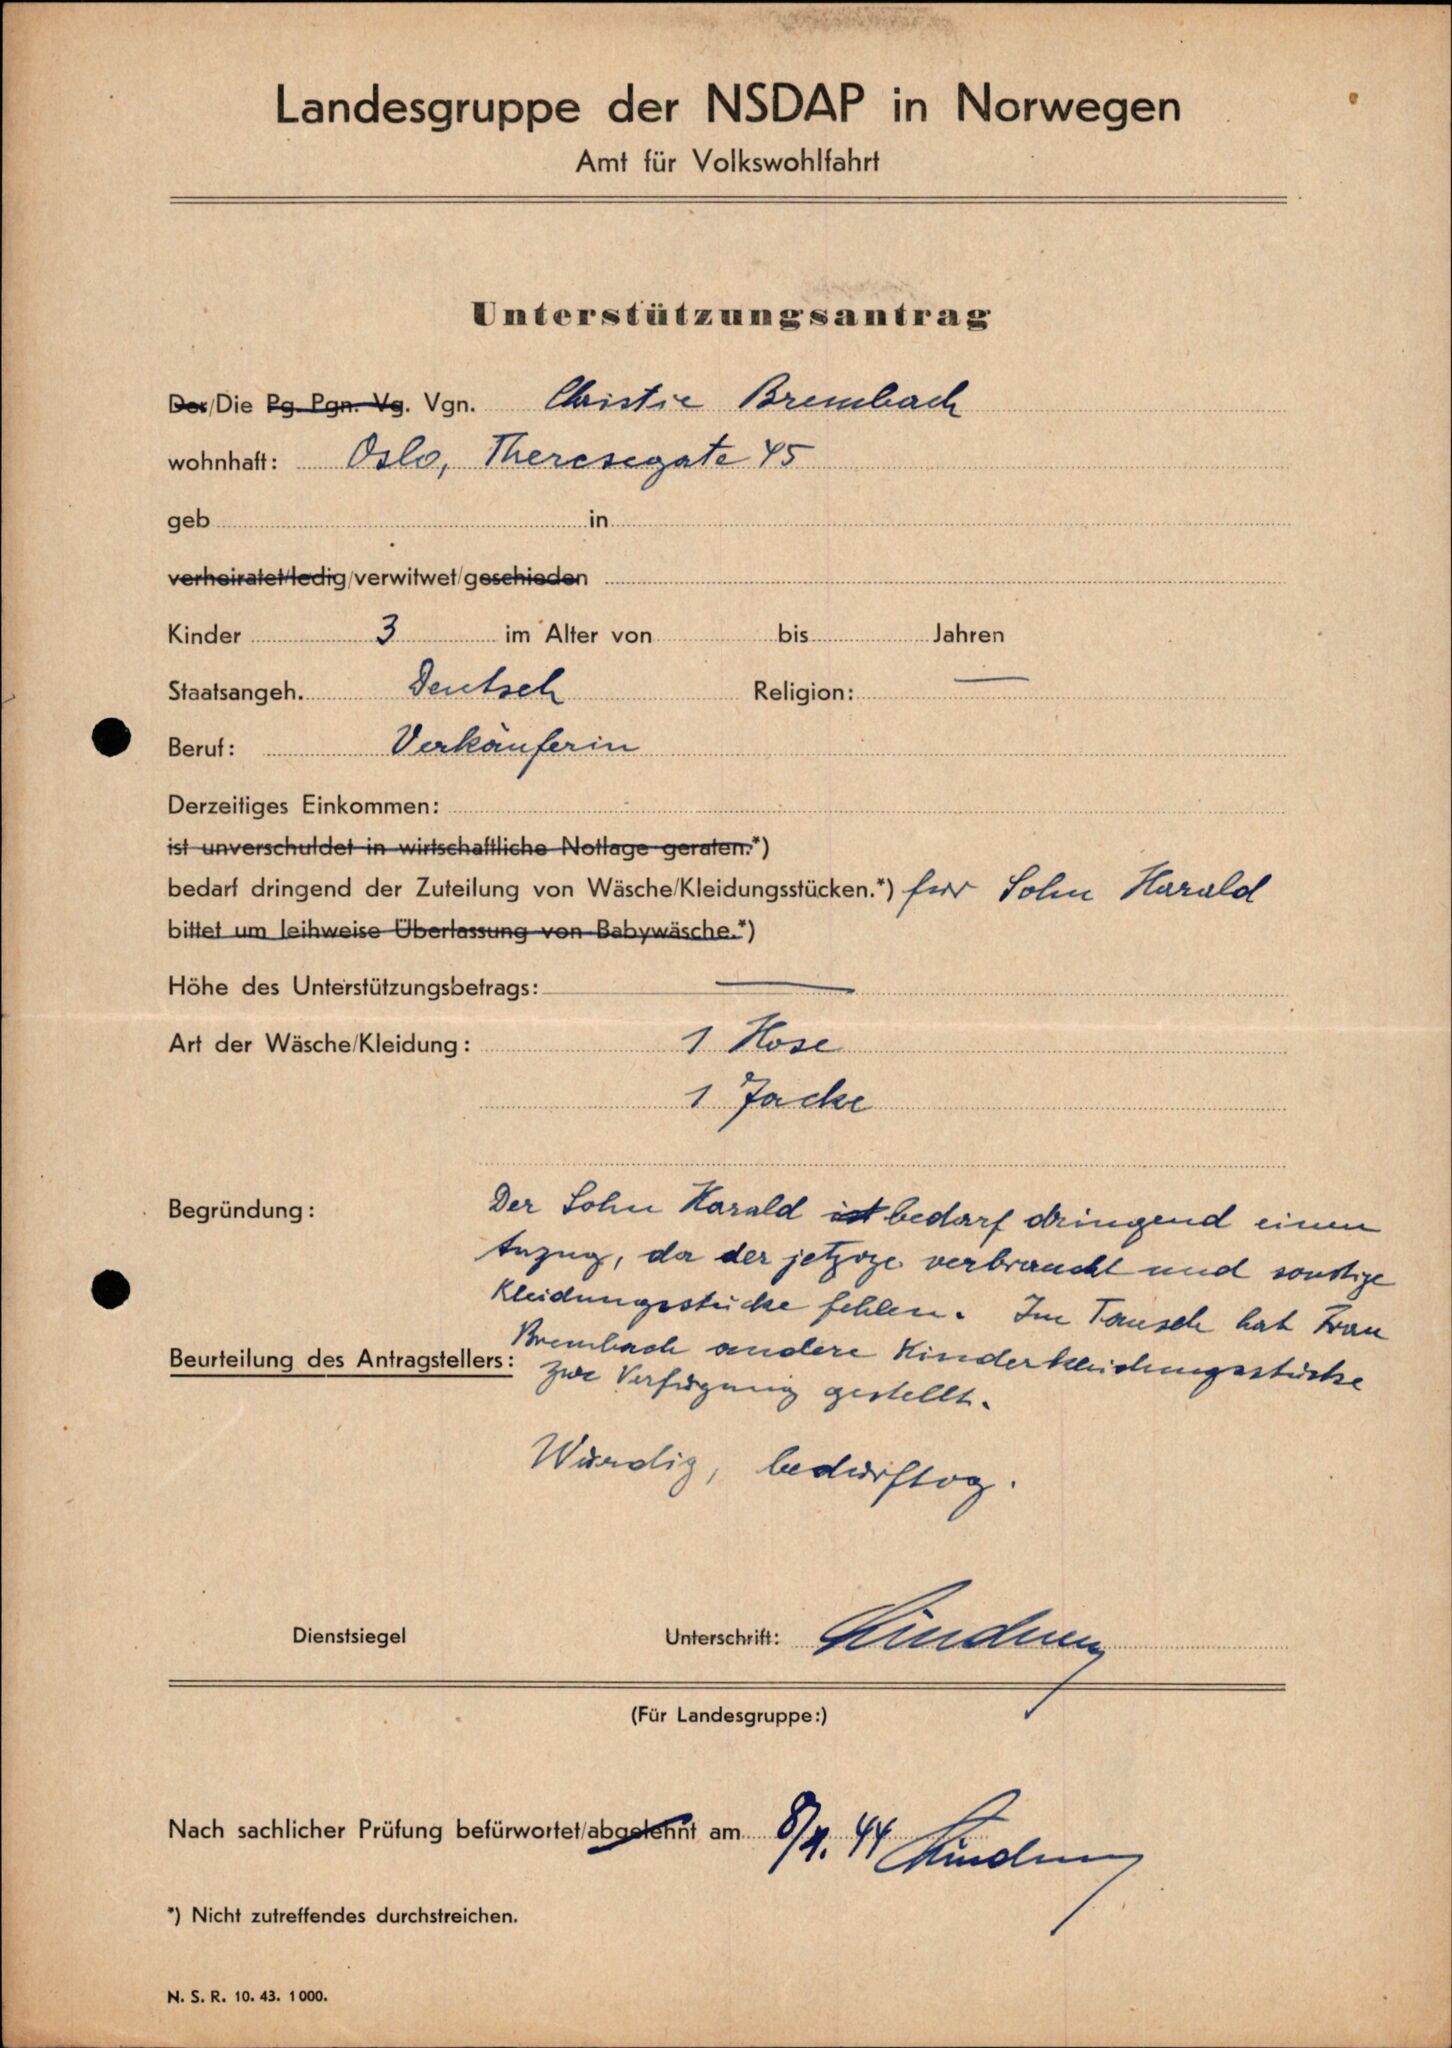 Landesgruppe der NSDAP in Norwegen
Amt für Volkswohlfahrt
Unterstützungsantrag
Der/Die Pg. Pgn. Vg. Vgn. Christie Brembach
wohnhaft: Oslo, Theresegate 45
geb in
verheiratet/ledig/verwitwet/geschieden
Kinder 3 im Alter von bis Jahren
Staatsangeh. Deutsch Religion: —
Beruf: Verkäuferin
Derzeitiges Einkommen:
ist unverschuldet in wirtschaftliche Notlage geraten.*)
bedarf dringend der Zuteilung von Wäsche/Kleidungsstücken.*) für Sohn Harald
bittet um leihweise Überlassung von Babywäsche.*)
Höhe des Unterstützungsbetrags: —
Art der Wäsche/Kleidung: 1 Hose
1 Jacke
Begründung: Der Sohn Harald ist bedarf dringend einen
Anzug, da der jetzige verbraucht und sonstige
Kleidungsstücke fehlen. Im Tausch hat Frau
Brembach andere Kinderkleidungsstücke
Beurteilung des Antragstellers: zur Verfügung gestellt.
Würdig, bedürftig.
Dienstsiegel Unterschrift:
(Für Landesgruppe:)
Nach sachlicher Prüfung befürwortet/abgelehnt am 44
*) Nicht zutreffendes durchstreichen.
N. S. R. 10. 43. 1000.